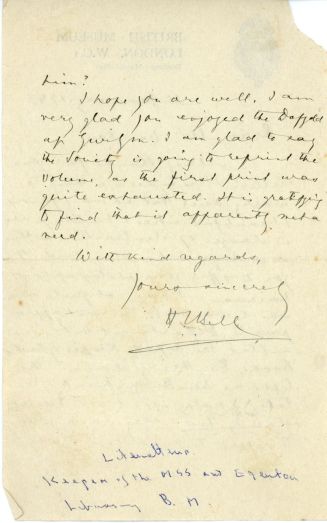 him?
I hope you are well. I am
very glad you enjoyed the Dafydd
ap Gwilym. I am glad to say
the Society is going to reprint the
volume, as the first print was
quite exhausted. It is gratifying
to find that it apparently met a
need.
With kind regards,
Yours sincerely
H I Bell
Keeper of the MSS and Egerton
B. M.
BRITISH MUSEUM
LONDON, W.C.